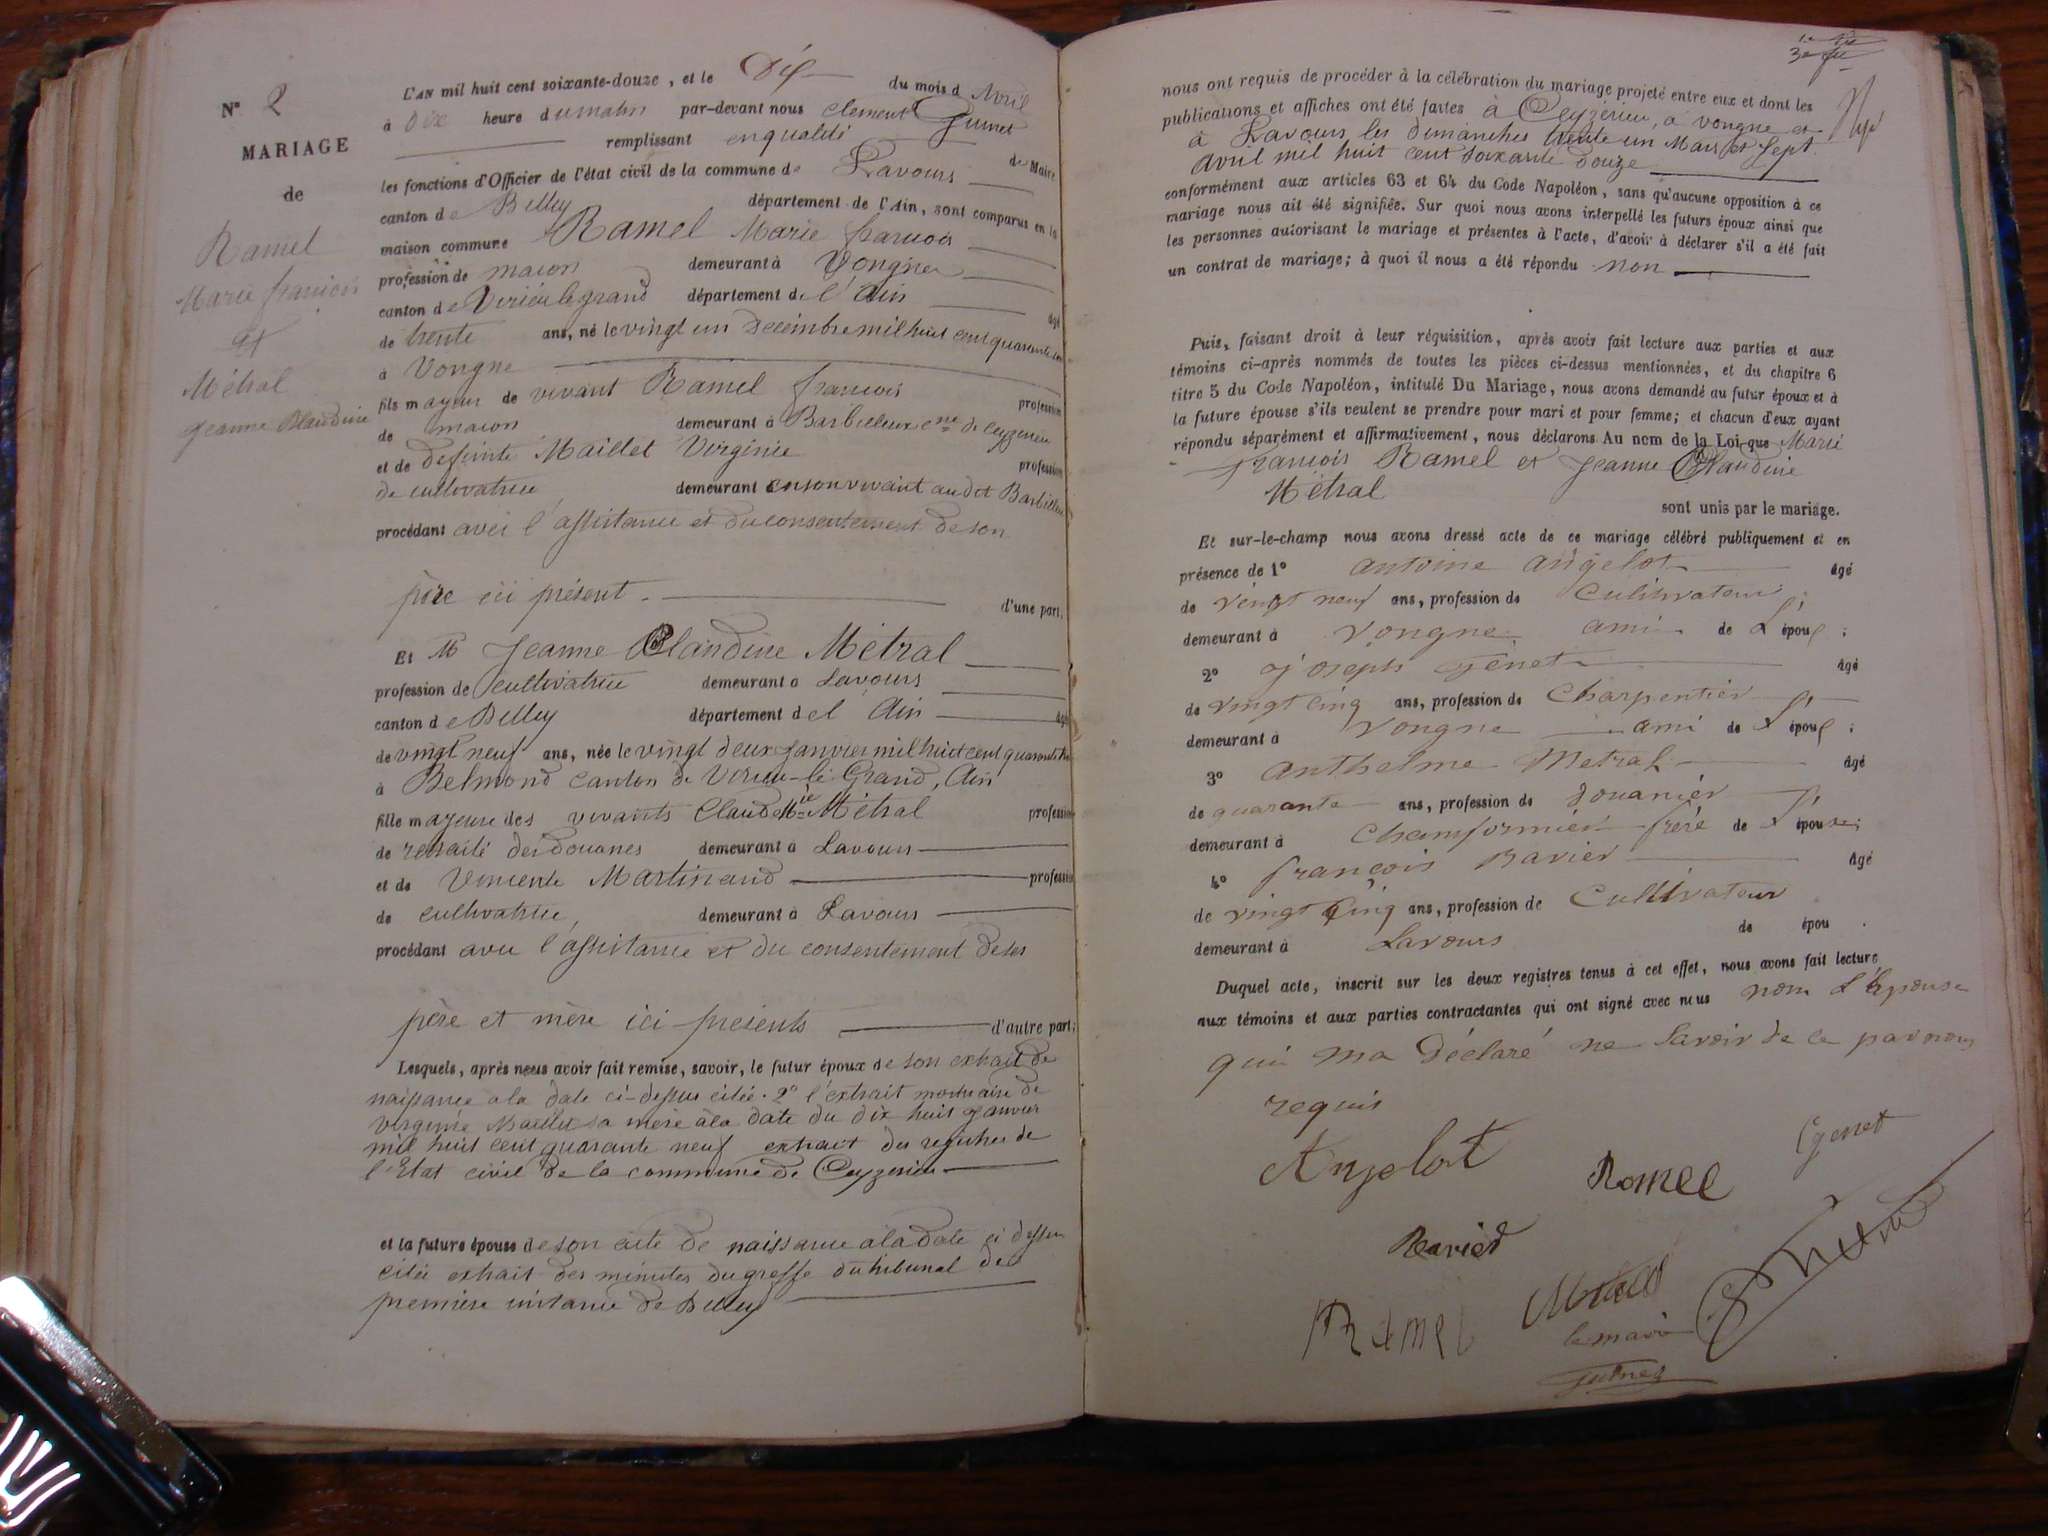 N° 2
MARIAGE
de
Ramel
Marie françois
et
Métral
Jeanne Claudine
L'AN mil huit cent soixante-douze, et le Dix du mois d Avril
à Dix heure du matin par-devant nous Clement Guinet
remplissant en qualité de Maire
les fonctions d'Officier de l'état civil de la commune de Lavours
canton de Belley département de l'Ain, sont comparus en la
maison commune Ramel Marie francois
profession de macon demeurant à Vongnes
canton de Virieu le grand département de l'Ain âgé
de trente ans, né le vingt un Decembre mil huit cent quarante un
à Vongne
fils majeur de vivant Ramel francois profession
de macon demeurant à Barbilleux cne de Ceyzerieu
et de defunte Maillet Virginie profession
de cultivatrice demeurant en son vivant au dit Barbilleux
procédant avec l'assistance et du consentement de son
père ici présent. d'une part.
Et M Jeanne Claudine Métral
profession de cultivatrice demeurant à Lavours
canton de Belley département de l'Ain âgé
de vingt neuf ans, née le vingt deux Janvier mil huit cent quarante trois
à Belmond Canton de Virieu-le-Grand, Ain
fille majeure des vivants Claude Mie Métral profession
de retraité des douanes demeurant à Lavours
et de Vincente Martinand profession
de cultivatrice, demeurant à Lavours
procédant avec l'assistance et du consentement de ses
père et mère ici présents d'autre part;
Lesquels, après nous avoir fait remise, savoir, le futur époux de son extrait de
naissance a la date ci-dessus citée. 2° l'extrait mortuaire de
Virginie Maillet sa mère à la date du dix huit Janvier
mil huit cent quarante neuf extrait des registres de
l'Etat civil de la commune de Ceyzerieu
et la future épouse de son acte de naissance a la date ci dessus
citée extrait des minutes du greffe du tribunal de
première instance de Belley
nous ont requis de procéder à la célébration du mariage projeté entre eux et dont les
publications et affiches ont été faites à Ceyzérieu, à Vongne et
à Lavours les dimanches trente un Mars et Sept
avril mil huit cent soixante douze
conformément aux articles 63 et 64 du Code Napoléon, sans qu'aucune opposition à ce
mariage nous ait été signifiée. Sur quoi nous avons interpellé les futurs époux ainsi que
les personnes autorisant le mariage et présentes à l'acte, d'avoir à déclarer s'il a été fait
un contrat de mariage; à quoi il nous a été répondu non
Puis, faisant droit à leur réquisition, après avoir fait lecture aux parties et aux
témoins ci-après nommés de toutes les pièces ci-dessus mentionnées, et du chapitre 6
titre 5 du Code Napoléon, intitulé Du Mariage, nous avons demandé au futur époux et à
la future épouse s'ils veulent se prendre pour mari et pour femme; et chacun d'eux ayant
répondu séparément et affirmativement, nous déclarons Au nom de la Loi que Marie
francois Ramel et Jeanne Claudine
Métral
sont unis par le mariage.
Et sur-le-champ nous avons dressé acte de ce mariage célébré publiquement et en
présence de 1° antoine angelot âgé
de vingt neuf ans, profession de Cultivateur
demeurant à Vongne ami de L'époux;
2° Joseph Genet âgé
de vingt cinq ans, profession de Charpentier
demeurant à Vongne ami de L'époux;
3° Anthelme Metral âgé
de quarante ans, profession de douanier
demeurant à Chamfromier frère de L'épouse;
4° françois Ravier âgé
de vingt cinq ans, profession de Cultivateur
demeurant à Lavours de épou .
Duquel acte, inscrit sur les deux registres tenus à cet effet, nous avons fait lecture
aux témoins et aux parties contractantes qui ont signé avec nous non L'épouse
qui ma déclaré ne Savoir de ce par nous
requis
Angelot Ramel Genet
Ravier
Ramel Metral
le maire
Guinet